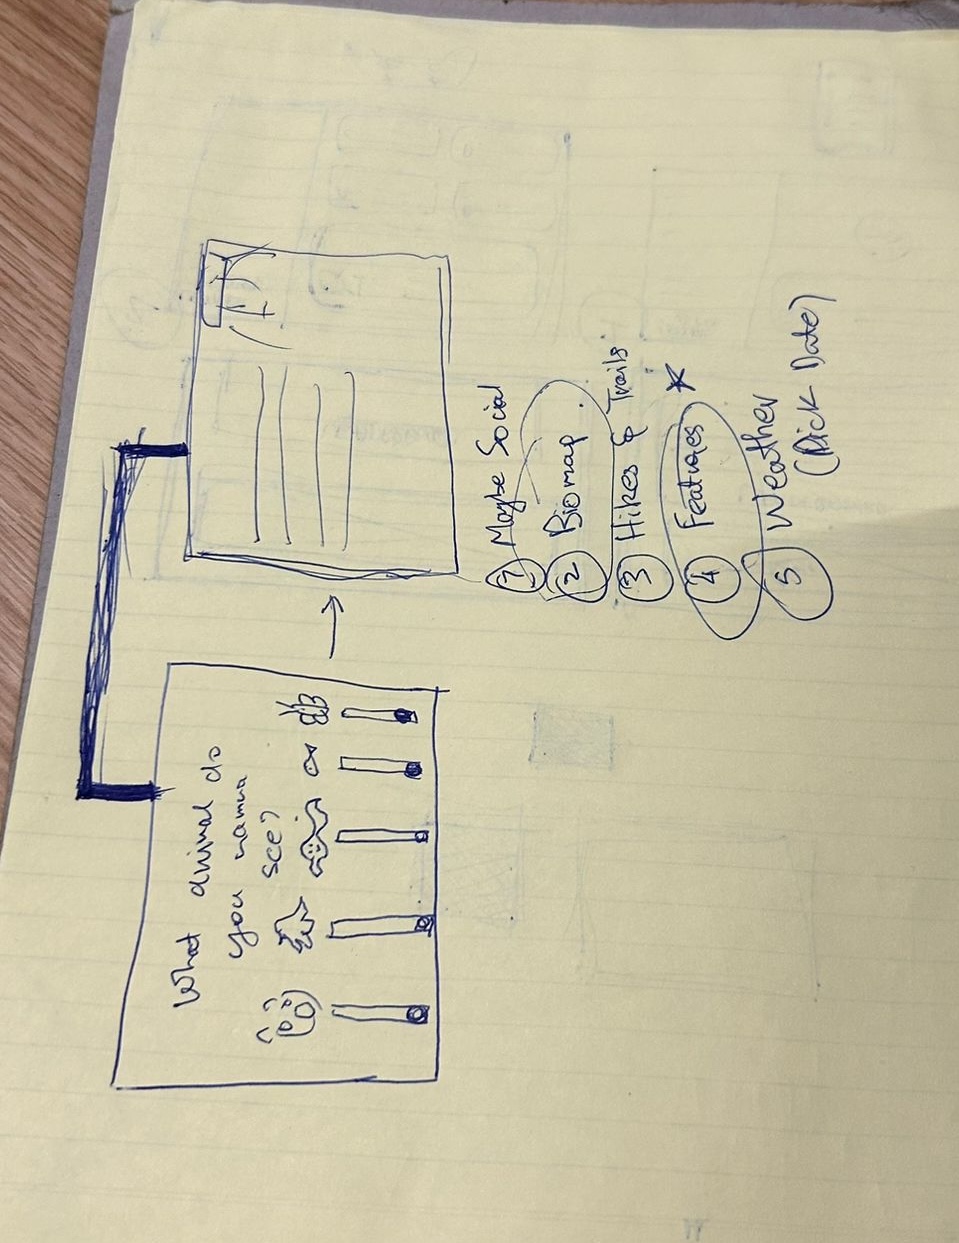 What animal do
you wanna
see?
① Maybe Social
② Biomap
③ Hikes & Trails
④ Features
⑤ Weather
(Pick Date)